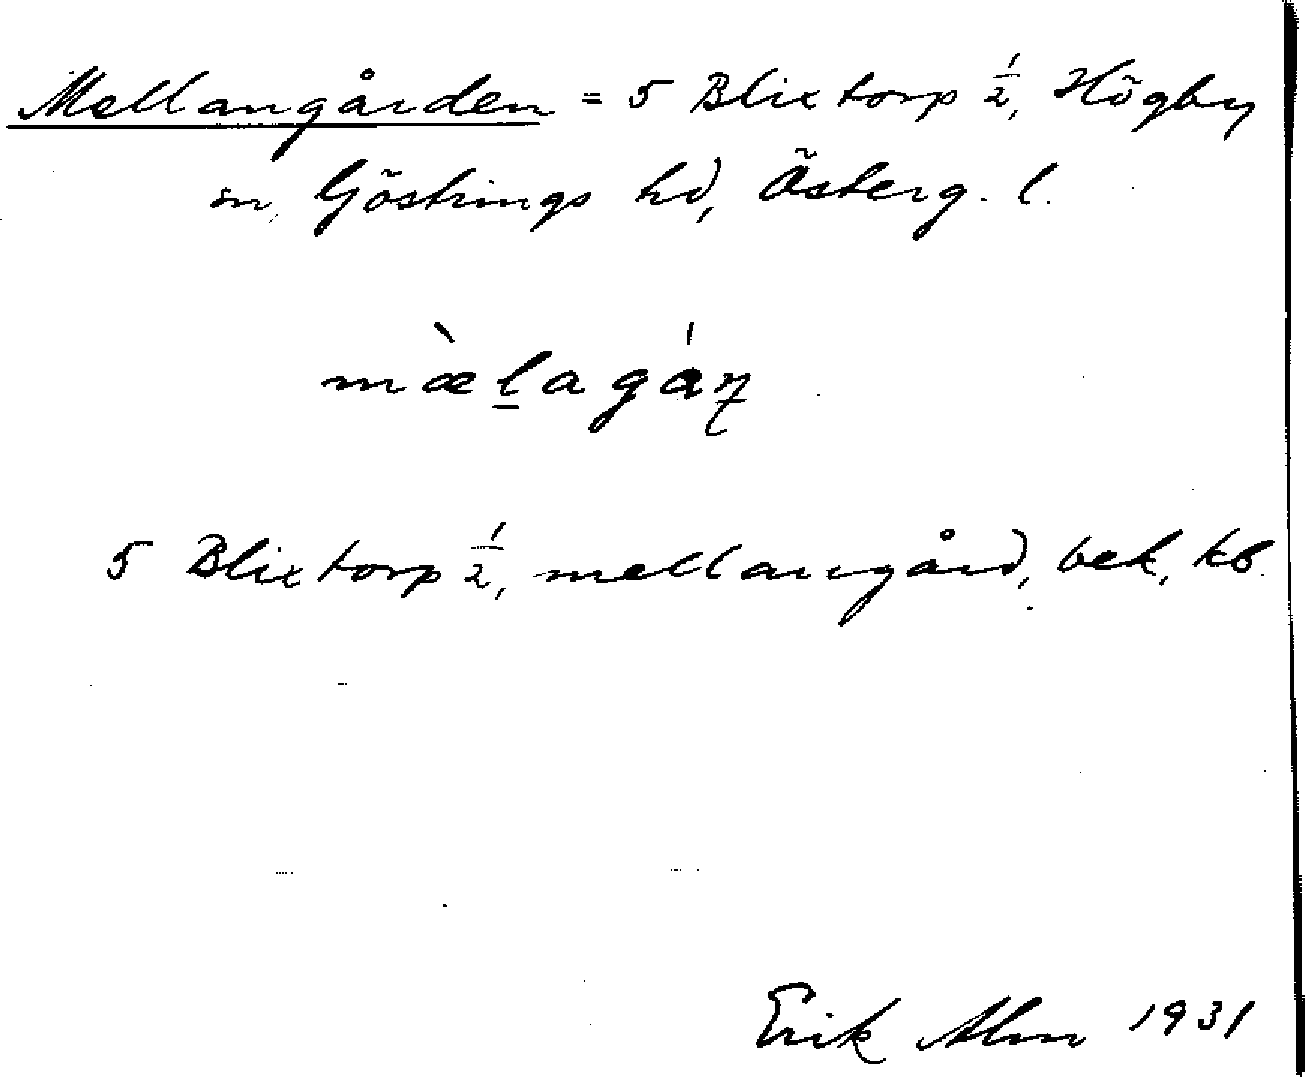 Mellangården = 5 Blixtorp 1/2, Högby
sn, Göstrings hd, Österg. l.
mæ̀l̠agáɳ
5 Blixtorp 1/2, mellangård, bek, kb.
Erik Alm 1931